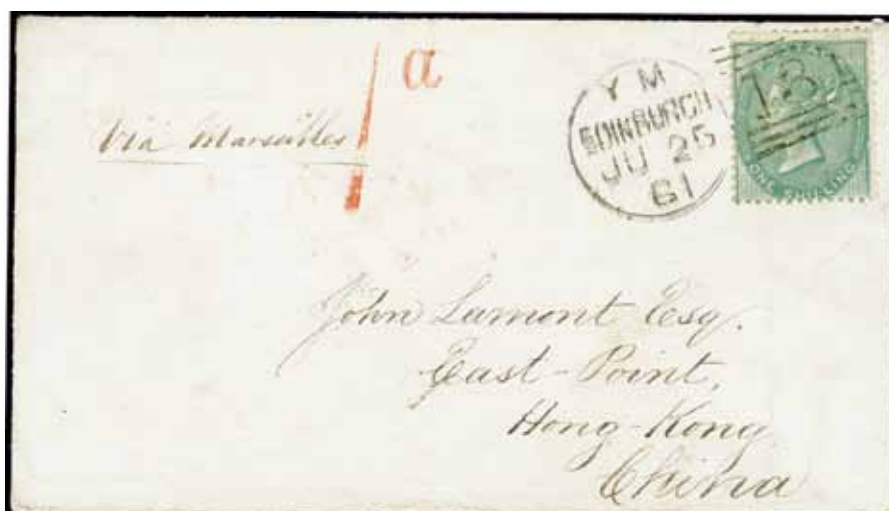 Via Marseilles
1 a
Y M
EDINBURGH
JU 25
61
13
ONE SHILLING
John Lamont Esq.
East-Point,
Hong-Kong
China